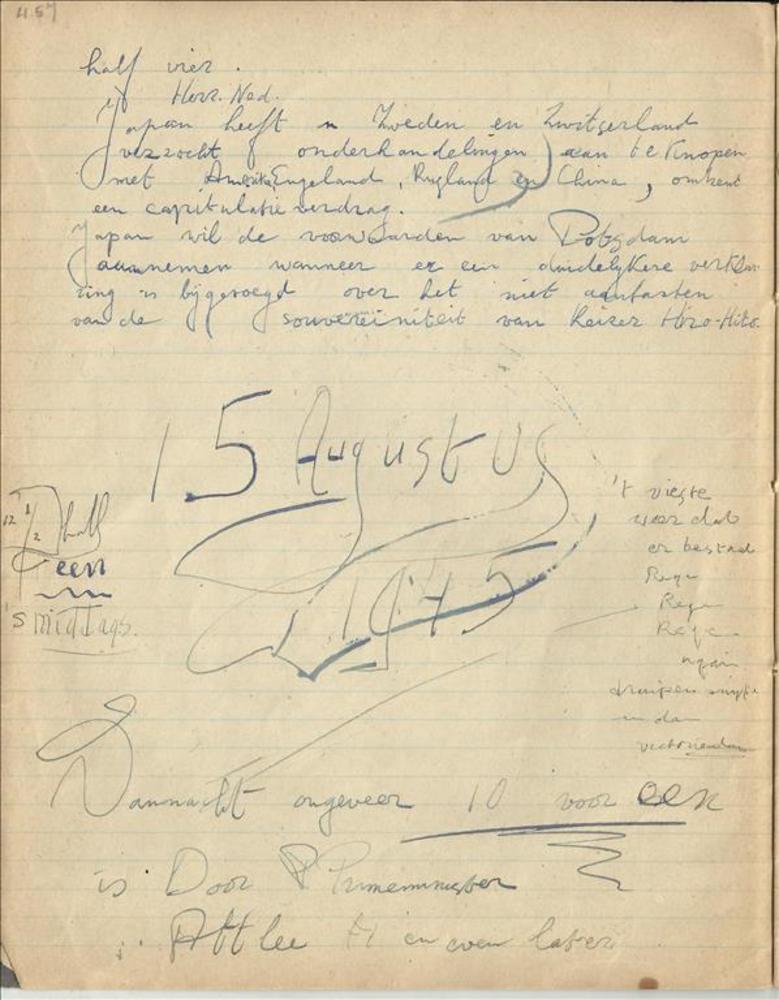 457
half vier.
Herr. Ned.
Japan heeft Zweden en Zwitserland
verzocht onderhandelingen aan te knopen
met Amerika Engeland, Rusland en China, omtrent
een capitulatie verdrag.
Japan wil de voorwaarden van Potsdam
aannemen wanneer er een duidelykere verkla-
ring is bijgevoegd over het niet aantasten
van de souvereiniteit van Keizer Hiro-Hito.
15 Augustus
1945
12 1/2 half
een
's middags.
't vieste
weer dat
er bestaat
Rege
Rege
Rege
again
druipen
en dan
Vannacht ongeveer 10 voor een
is Door Primeminister
Attlee en even later